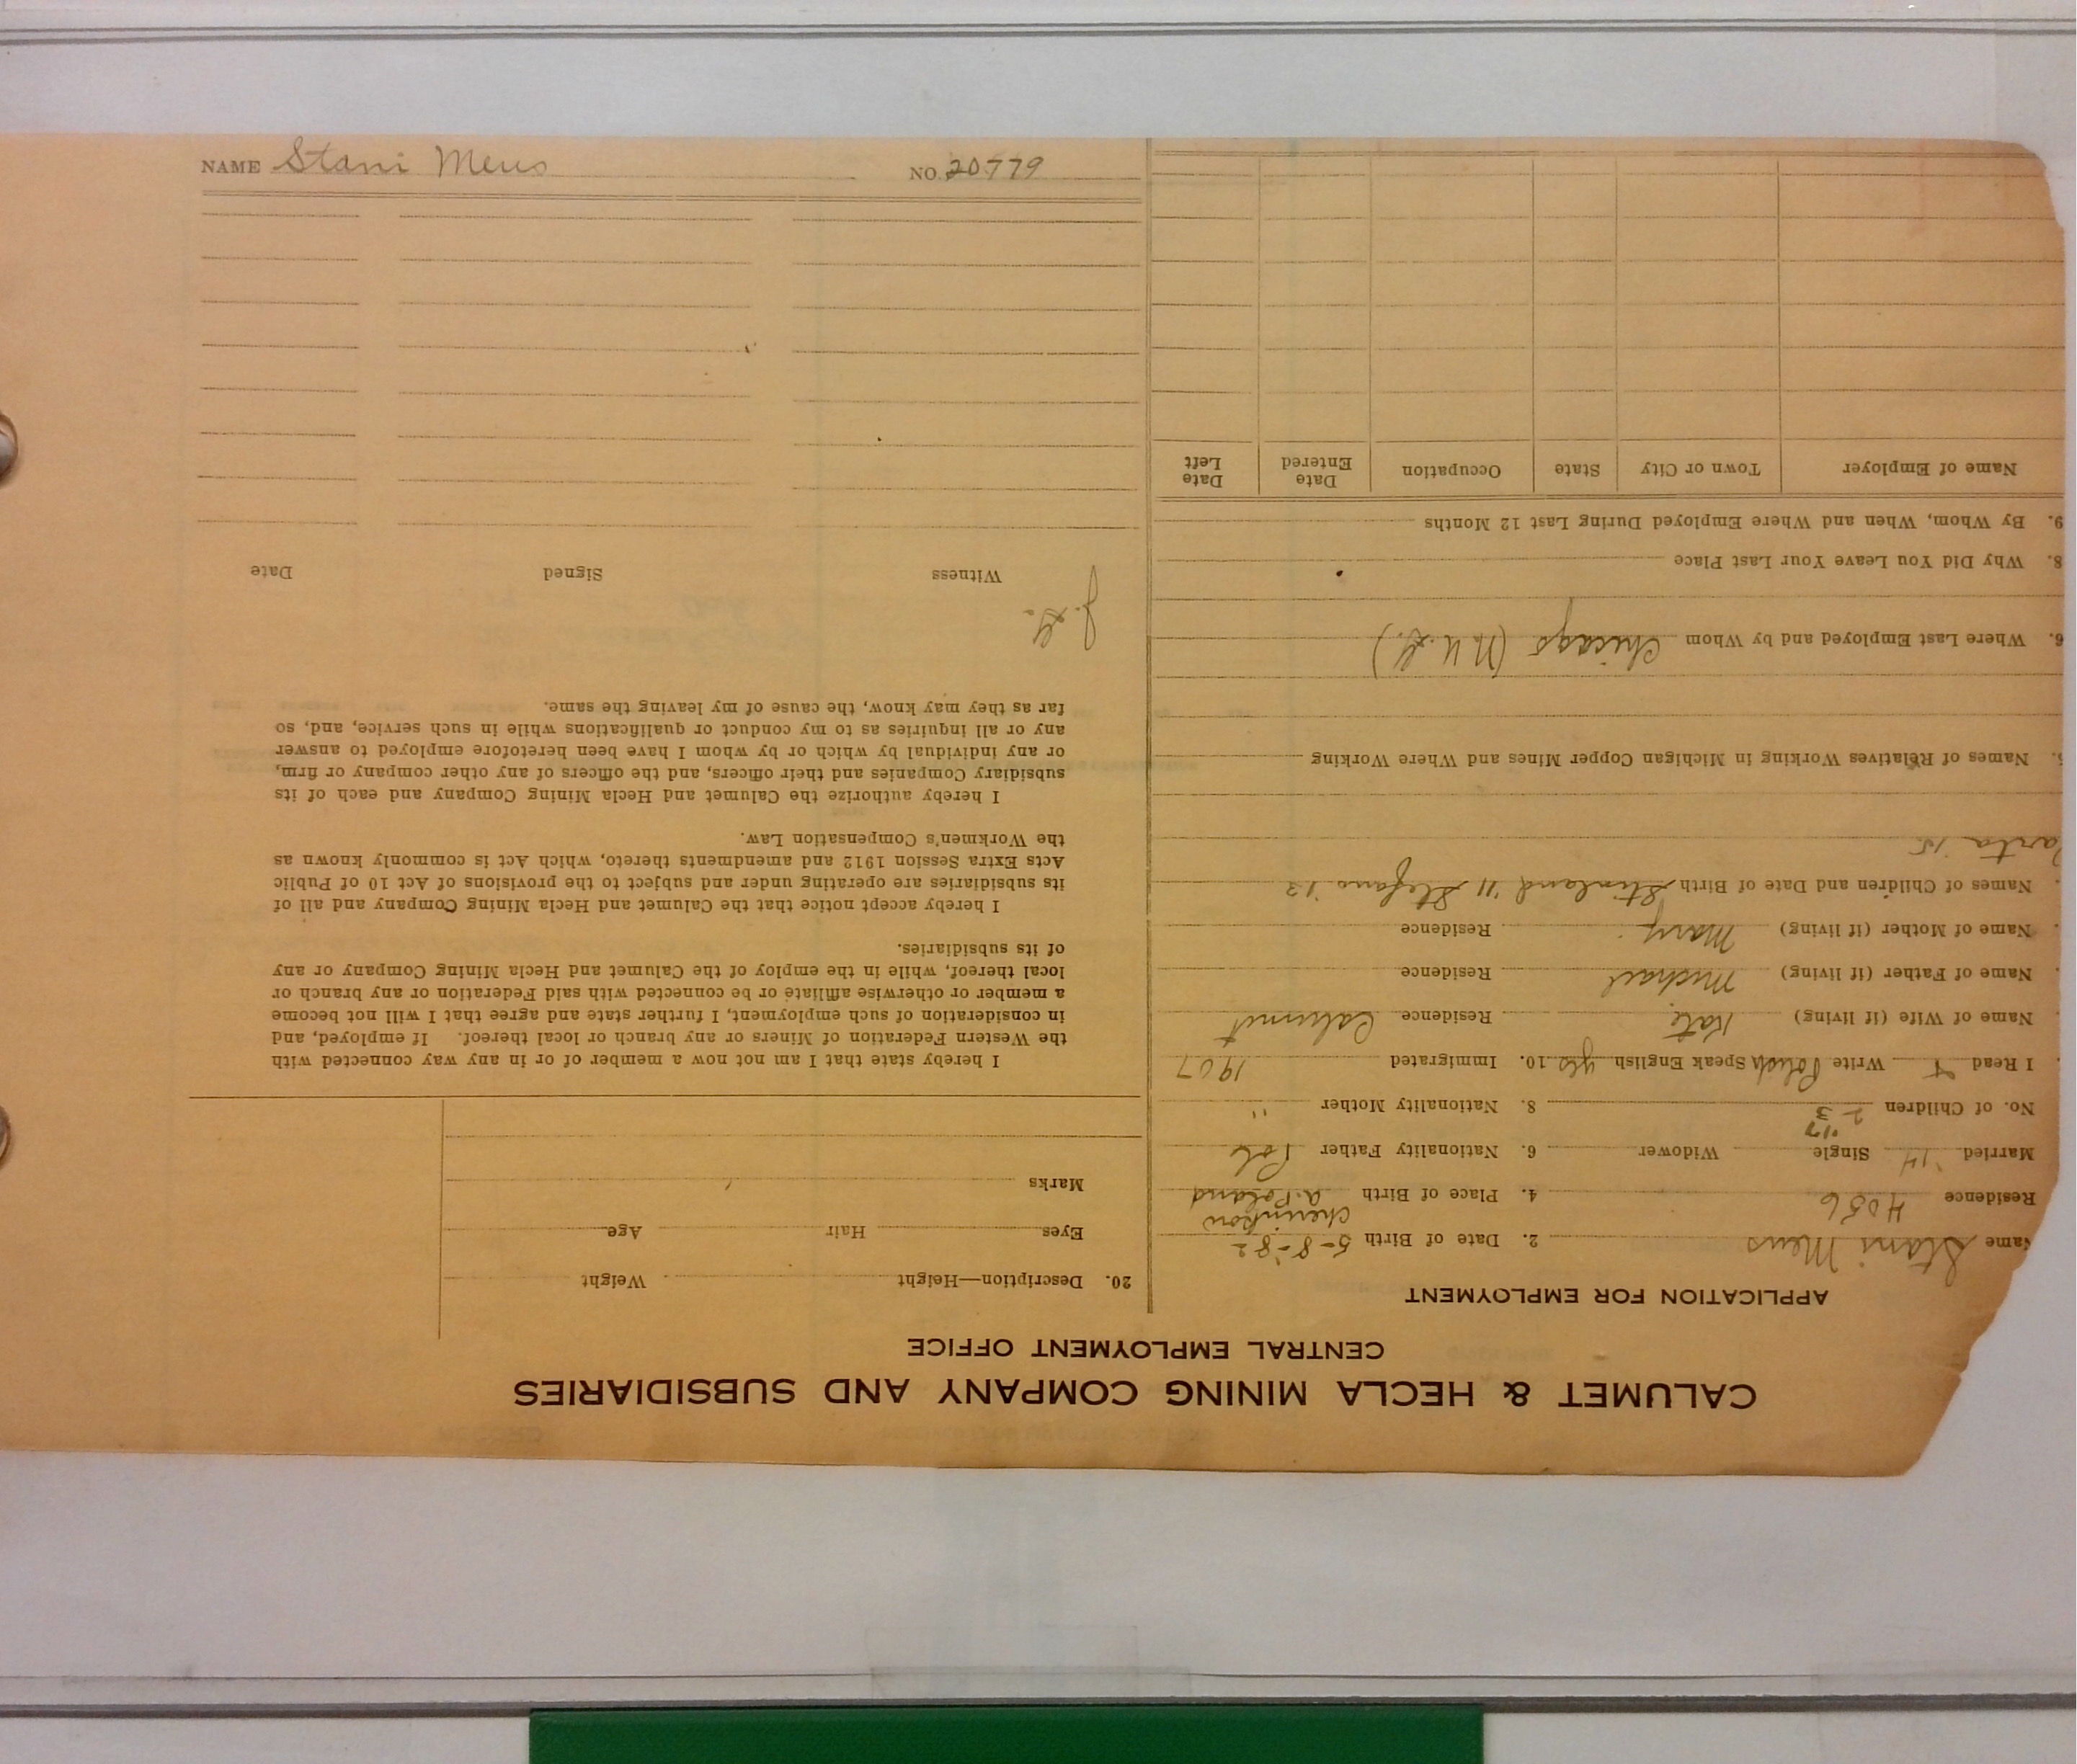 CALUMET & HECLA MINING COMPANY AND SUBSIDIARIES
CENTRAL EMPLOYMENT OFFICE
APPLICATION FOR EMPLOYMENT
Name Stani Meus 2. Date of Birth 5-8-82
Residence 4056 4. Place of Birth a. Poland
Married '14 Single Widower 6. Nationality Father Pol
'17
No. of Children 2 3 8. Nationality Mother "
I Read Write Polish Speak English yes 10. Immigrated 1907
Name of Wife (if living) Kate Residence Calumet
Name of Father (if living) Michael Residence
Name of Mother (if living) Mary Residence
Names of Children and Date of Birth '11 Stefano '13
'15
Names of Relatives Working in Michigan Copper Mines and Where Working
6. Where Last Employed and by Whom Chicago
8. Why Did You Leave Your Last Place
9. By Whom, When and Where Employed During Last 12 Months
Name of Employer Town or City State Occupation Date Entered Date Left
20. Description—Height Weight
Eyes Hair Age
Marks
I hereby state that I am not now a member of or in any way connected with
the Western Federation of Miners or any branch or local thereof. If employed, and
in consideration of such employment, I further state and agree that I will not become
a member or otherwise affiliate or be connected with said Federation or any branch or
local thereof, while in the employ of the Calumet and Hecla Mining Company or any
of its subsidiaries.
I hereby accept notice that the Calumet and Hecla Mining Company and all of
its subsidiaries are operating under and subject to the provisions of Act 10 of Public
Acts Extra Session 1912 and amendments thereto, which Act is commonly known as
the Workmen's Compensation Law.
I hereby authorize the Calumet and Hecla Mining Company and each of its
subsidiary Companies and their officers, and the officers of any other company or firm,
or any individual by which or by whom I have been heretofore employed to answer
any or all inquiries as to my conduct or qualifications while in such service, and, so
far as they may know, the cause of my leaving the same.
Witness Signed Date
NAME Stani Meus NO. 20779